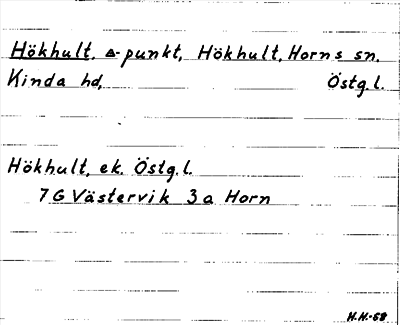 Hökhult. △-punkt, Hökhult, Horns sn.
Kinda hd, Östg.l.
Hökhult, ek. Östg.l.
7 G Västervik 3 a Horn
H.H.-68